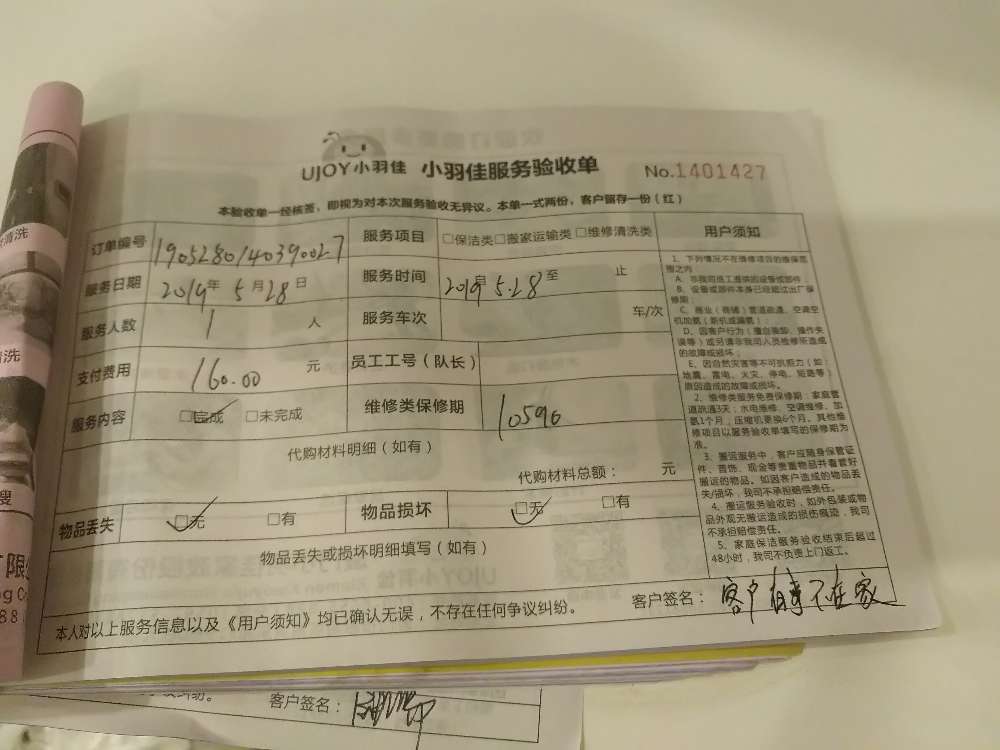 UJOY小羽佳 小羽佳服务验收单 No.1401427
本验收单一经核签，即视为对本次服务验收无异议。本单一式两份，客户留存一份（红）
订单编号 1905280140390027 服务项目 □保洁类□搬家运输类□维修清洗类 用户须知
服务日期 2019年 5月28日 服务时间 2019 5.28 自 至 止
服务人数 1 人 服务车次 车/次
支付费用 160.00 元 员工工号（队长）
服务内容 □完成 □未完成 维修类保修期 10596
代购材料明细（如有）
代购材料总额： 元
物品丢失 □无 □有 物品损坏 □无 □有
物品丢失或损坏明细填写（如有）
本人对以上服务信息以及《用户须知》均已确认无误，不存在任何争议纠纷。 客户签名： 客户 不在家
1、下列情况不在维修项目的维保范
围之内
A、非我司员工提供的设备或部件
B、设备或部件本身已经超过出厂保
修期；
C、商业（商铺）管道疏通、空调空
机加氨（新机或漏氨）；
D、因客户行为（擅自装卸、操作失
误等）或另请非我司人员检修所造成
的故障或损坏；
E、因自然灾害等不可抗拒力（如：
地震、雷电、火灾、停电、短路等）
原因造成的故障或损坏。
2、维修类服务免费保修期：家庭管
道疏通3天；水电维修、空调维修、加
氨1个月；压缩机更换6个月。其他维
修项目以服务验收单填写的保修期为
准。
3、搬运服务中，客户应随身保管证
件、首饰、现金等贵重物品并看管好
搬运的物品。如因客户造成的物品丢
失/损坏，我司不承担赔偿责任。
4、搬运服务验收时，如外包装或物
品外观无搬运造成的损伤痕染，我司
不承担赔偿责任。
5、家庭保洁服务验收结束后超过
48小时，我司不负责上门返工。
客户签名：
清洗
清洗